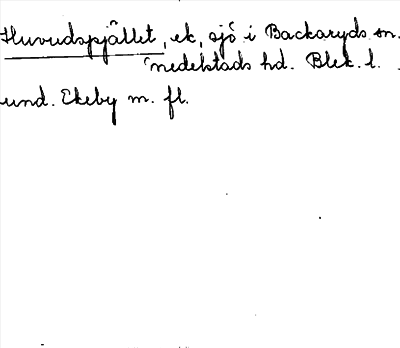 Huvudspjället, ek, sjö i Backaryds sn.
medelstads hd. Blek. l.
und. Ekeby m. fl.